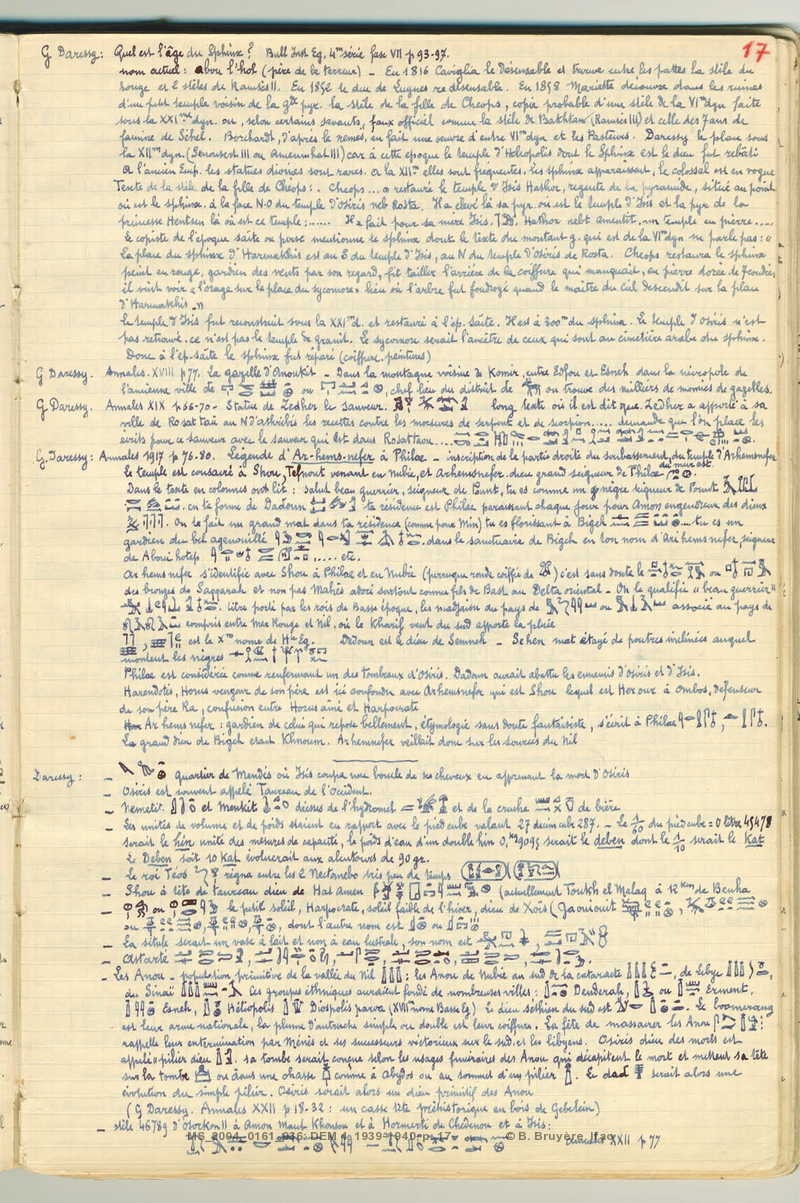 17
G Daressy: Quel est l'âge du Sphinx ? Bull Inst Eg. 4me série fasc VII p 93-97.
nom actuel : abou l'hol (père de la terreur) – En 1816 Caviglia le désensable et trouve entre les pattes la stèle du
songe et 2 stèles de Ramsès II. En 1852 le duc de Luynes re désensable. En 1858 Mariette découvre dans les ruines
d'un petit temple voisin de la gde pyr. la stèle de la fille de Cheops, copie probable d'une stèle de la VI dyn faite
sous la XXIme dyn. ou, selon certains savants, faux officiel comme la stèle de Bakhtan (Ramsès III) et celle des 7 ans de
famine de Séhel. Borchardt, d'après le nemes, en fait une œuvre d'entre VIme dyn et les Pasteurs. Daressy le place sous
la XIIme dyn. (Senousert III ou Amenemhat III) car à cette époque le temple d'Héliopolis dont le Sphinx est le dieu fut rebâti
A l'ancien Emp. les statues divines sont rares. A la XIIme elles sont fréquentes. les sphinx apparaissent, le colossal est en vogue
Texte de la stèle de la fille de Cheops : Cheops ... a restauré le temple d'Isis Hathor, regente de la pyramide, situé au point
où est le sphinx. à la face N.O du temple d'Osiris neb Rosta. Il a élevé là sa pyr. où est le temple d'Isis et la pyr de la
princesse Hentsen là où est ce temple ; ..... Il a fait pour sa mère Isis, Hathor nebt Amentit, un temple en pierre ....
le copiste de l'époque saïte ou perse mentionne le sphinx dont le texte du montant g. qui est de la VIme dyn ne parle pas : "
La place du sphinx d'Harmakhis est au S du temple d'Isis, au N du temple d'Osiris de Rosta. Cheops restaura le sphinx
peint en rouge, gardien des vents par son regard, fit tailler l'arrière de la coiffure qui manquait, en pierre dorée de 7 coudées
il vint voir « l'orage sur la place du sycomore » lieu où l'arbre fut foudroyé quand le maître du ciel descendit sur la place
d'Harmakhis ."
Le temple d'Isis fut reconstruit sous la XXIme d. et restauré à l'ép. saïte. Il est à 300m du sphinx. Le temple d'Osiris n'est
pas retrouvé. ce n'est pas le temple de granit. Le sycomore serait l'ancêtre de ceux qui sont au cimetière arabe du sphinx.
Donc à l'ép. saïte le sphinx fut réparé (coiffure. peintures)
G Daressy. Annales. XVIII p 77. la gazelle d'Anoukit – Dans la montagne voisine de Komir, entre Edfou et Esneh dans la nécropole de
l'ancienne ville de ou , chef lieu du district de on trouve des milliers de momies de gazelles.
G Daressy. Annales XIX p 66-70 – Statue de Zedher le sauveur. long texte où il est dit que Zedher a apporté à sa
ville de Rosat taü au N d'Athribis les recettes contre les morsures de serpent et de scorpion ..... demande que l'on place les
écrits pour ce sauveur avec le sauveur qui est dans Rosattaou ....
G. Daressy: Annales 1917 p 76.80. Légende d'Ar-hems-nefer à Philae – inscription de la partie droite du soubassement, du temple d'Arhemsnefer
du mur est.
le temple est consacré à Shou, Tefnout venant en Nubie, et Arhemsnefer. dieu grand seigneur de Philae
Dans le texte en colonnes on lit : salut beau guerrier, seigneur de Pount, tu es comme un nègre seigneur de Pount
en ta forme de Dadoun ta résidence est Philae paraissant chaque jour pour Amon engendreur des dieux
. On te fait un grand mat dans ta résidence (comme pour Min) tu es florissant à Bigeh ... tu es un
gardien du bei agenouillé . dans le sanctuaire de Bigeh en ton nom d'Ari hems nefer, seigneur
de Aboui hotep .... etc.
Ar hems nefer s'identifie avec Shou à Philae et en Nubie (perruque ronde coiffée de ) c'est sans doute le ou
des bronzes de Saqqarah et non pas Mahès adoré surtout comme fils de Bast au Delta oriental – On le qualifie "beau guerrier"
. titre porté par les rois de Basse époque, les madjaïou du pays de ou associé au pays de
compris entre Mer Rouge et Nil, où le Kharif vent du sud apporte la pluie
, est le Xme nome de Hte Eg. Dedoun est le dieu de Semneh – Sehen mat étayé de poutres inclinées auquel
montent les nègres
Philae est considérée comme renfermant un des tombeaux d'Osiris. Dadoun aurait abattu les ennemis d'Osiris et d'Isis.
Harendotès, Horus vengeur de son père est ici confondu avec Arhemsnefer qui est Shou lequel est Horour à Ombos, défenseur
de son père Ra, confusion entre Horus ainé et Harpocrate
Ar hems nefer : gardien de celui qui repose bellement, étymologie sans doute fantaisiste, s'écrit à Philae
Le grand dieu de Bigeh était Khnoum. Arhemsnefer veillait donc sur les sources du Nil
Daressy : – quartier de Mendès où Isis coupa une boucle de ses cheveux en apprenant la mort d'Osiris
– Osiris est souvent appelé Taureau de l'Occident.
– Nemetit. et Menkit déesses de l'hydromel et de la cruche de bière
– Les unités de volume et de poids étaient en rapport avec le pied cube valant 27 décim cube 287. – Le 1/60 du pied cube = 0 litre 45478
serait le hin unité des mesures de capacité, le poids d'eau d'un double hin 0,kg9095 serait le deben dont le 1/10 serait le Kat
Le Deben soit 10 Kat évoluerait aux alentours de 90 gr.
– Le roi Téos régna entre les 2 Nectanebo très peu de temps
– Shou à tête de taureau dieu de Hat Amen (actuellement Toukh el Malaq à 12 Km de Benha
– ou le petit soleil, Harpocrate, soleil faible de l'hiver, dieu de Xoïs ( ,
ou , dont l'autre nom est ou
– La situle serait un vase à lait et non à eau lustrale, son nom est ,
– Astarté
– Les Anou – population primitive de la vallée du Nil : les Anou de Nubie au sud de la cataracte , de Libye
du Sinaï les groupes ethniques auraient fondé de nombreuses villes : Denderah, ou Erment,
Esneh, Héliopolis Diospolis parva (XVIIe nome Basse Eg.) le dieu sethien du sud est . Le boomerang
est leur arme nationale, la plume d'autruche simple ou double est leur coiffure. La fête de massacrer les Anou
rappelle leur extermination par Ménès et ses successeurs victorieux sur le sud et les libyens. Osiris dieu des morts est
appelé "pilier dieu . sa tombe serait conçue selon les usages funéraires des Anou qui décapitent le mort et mettent sa tête
sur la tombe ou dans une chasse comme à Abydos ou au sommet d'un pilier . Le dad serait alors une
évolution du simple pilier. Osiris serait alors un dieu primitif des Anou
( G Daressy. Annales XXII p 18-32 : un casse tête préhistorique en bois de Gebelein)
– stèle 46789 d'Osorkon II à Amon Maut Khonsou et à Hormerti de Chedenou et à Isis :
Annales XXII p 77
MS_2004_0161_036: DEM 4 1939-1940, p. 17 © B. Bruyère, Ifao